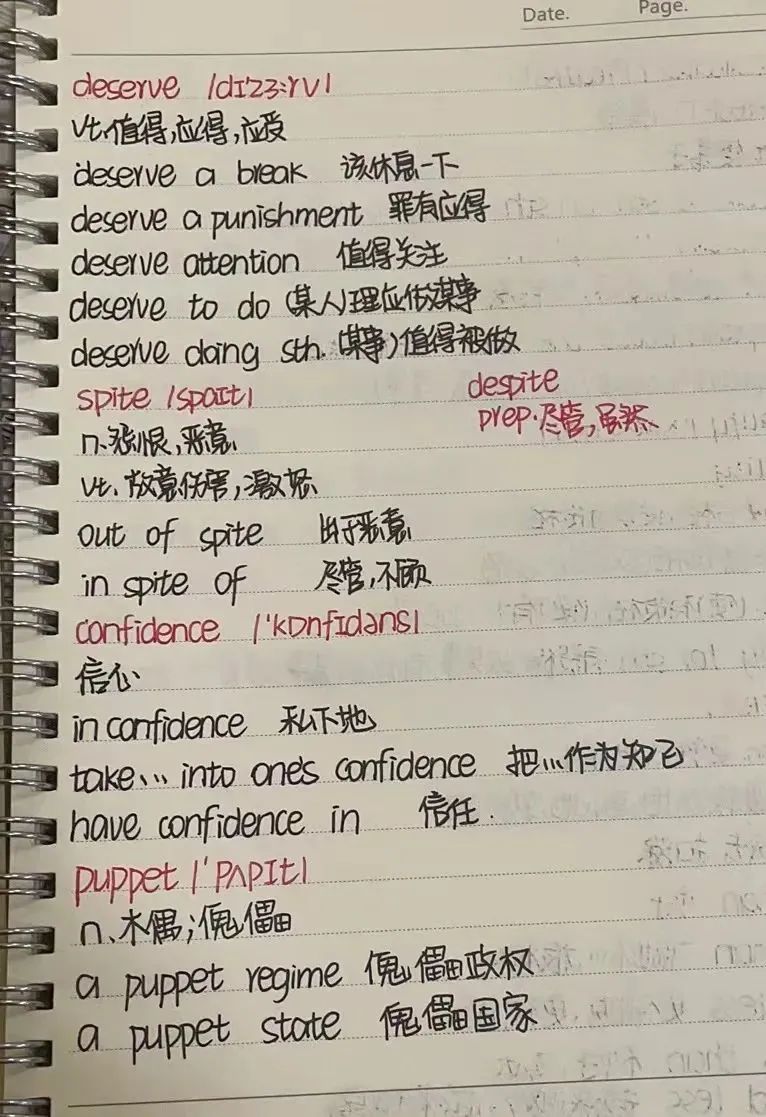 Date. Page.
deserve /dɪ'zɜ:rv/
vt.值得,应得,应受
deserve a break 该休息一下
deserve a punishment 罪有应得
deserve attention 值得关注
deserve to do (某人)理应做某事
deserve doing sth. (某事)值得被做
spite /spaɪt/ despite
n.怨恨,恶意 prep.尽管,虽然
vt.故意伤害,激怒
out of spite 出于恶意
in spite of 尽管,不顾
confidence /'kɒnfɪdəns/
信心
in confidence 私下地
take... into one's confidence 把...作为知己
have confidence in 信任.
puppet /'pʌpɪt/
n.木偶;傀儡
a puppet regime 傀儡政权
a puppet state 傀儡国家